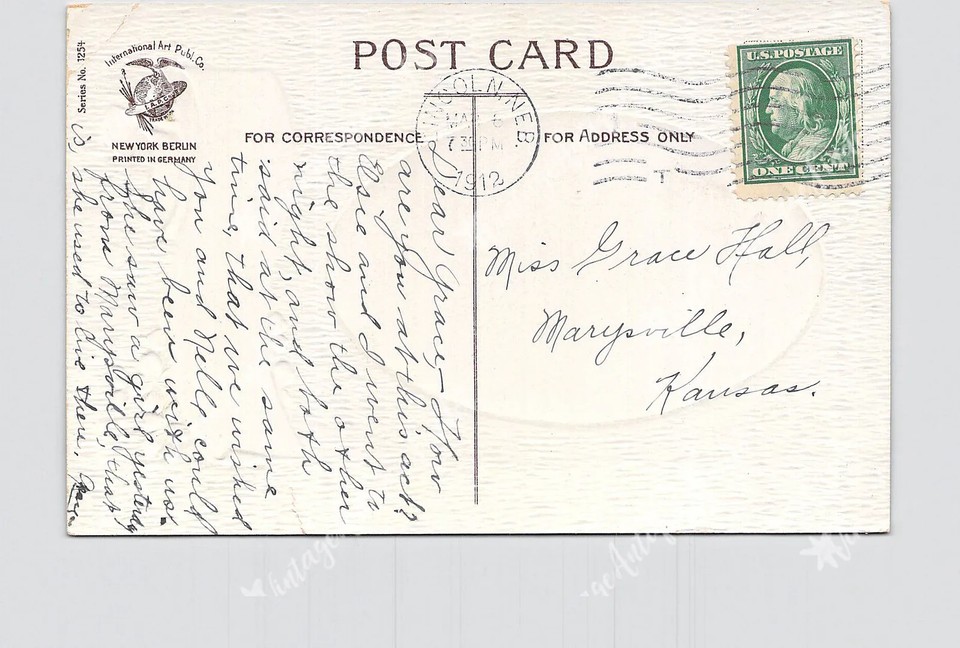 POST CARD
Series No. 1254
International Art Publ. Co.
NEW YORK BERLIN
PRINTED IN GERMANY
FOR CORRESPONDENCE
FOR ADDRESS ONLY
LINCOLN, NEB.
6
7 30 PM
1912
U.S. POSTAGE
ONE CENT
Dear Grace,- How
are you at this act?
Else and I went to
the show the other
night, and both
said at the same
time, that we wished
you and Nelle could
have been with us.
She saw a girl yesterday
from Marysville, that
is she used to live there,
Miss Grace Hall,
Marysville,
Kansas.